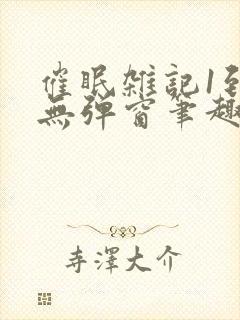 催眠雑記1至
無弹窗筆趣
寺澤大介